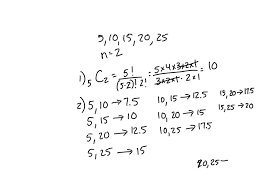 5, 10, 15, 20, 25
n = 2
1) ₅C₂ = 5! / (5-2)! 2! = 5x4x3x2x1 / 3x2x1 · 2x1 = 10
2) 5, 10 → 7.5 10, 15 → 12.5 15, 20 → 17.5
5, 15 → 10 10, 20 → 15 15, 25 → 20
5, 20 → 12.5 10, 25 → 17.5
5, 25 → 15
20, 25 –